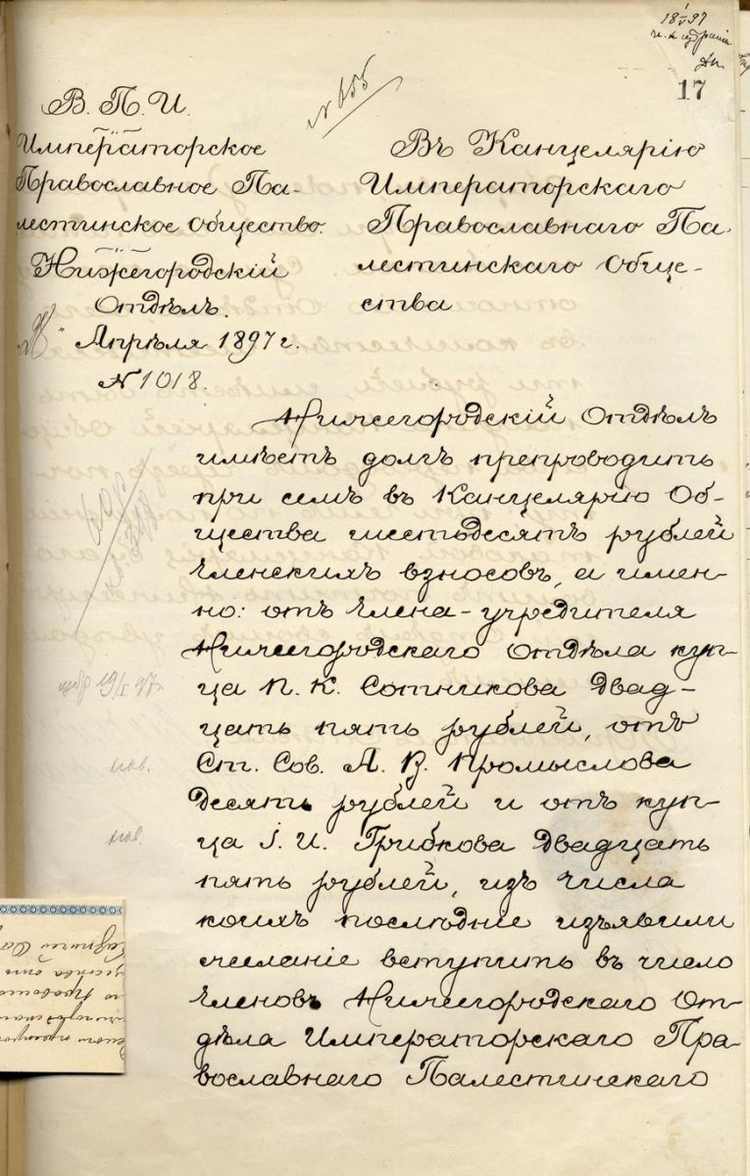 17
В. П. И.
Императорское
Православное Па-
лестинское Общество.
Нижегородскій
Отдѣлъ.
Апрѣля 1897 г.
№ 1018.
Въ Канцелярію
Императорскаго
Православнаго Па-
лестинскаго Обще-
ства
Нижегородскій Отдѣлъ
имѣетъ долгъ препроводить
при семъ въ Канцелярію Об-
щества шестьдесятъ рублей
членскихъ взносовъ, а имен-
но: отъ члена-учредителя
Нижегородскаго Отдѣла куп-
ца П. К. Сотникова двад-
цать пять рублей, отъ
Ст. Сов. А. В. Промыслова
десять рублей и отъ куп-
ца І. И. Грибкова двадцать
пять рублей, изъ числа
коихъ послѣдніе изъявили
желаніе вступить въ число
членовъ Нижегородскаго От-
дѣла Императорскаго Пра-
вославнаго Палестинскаго